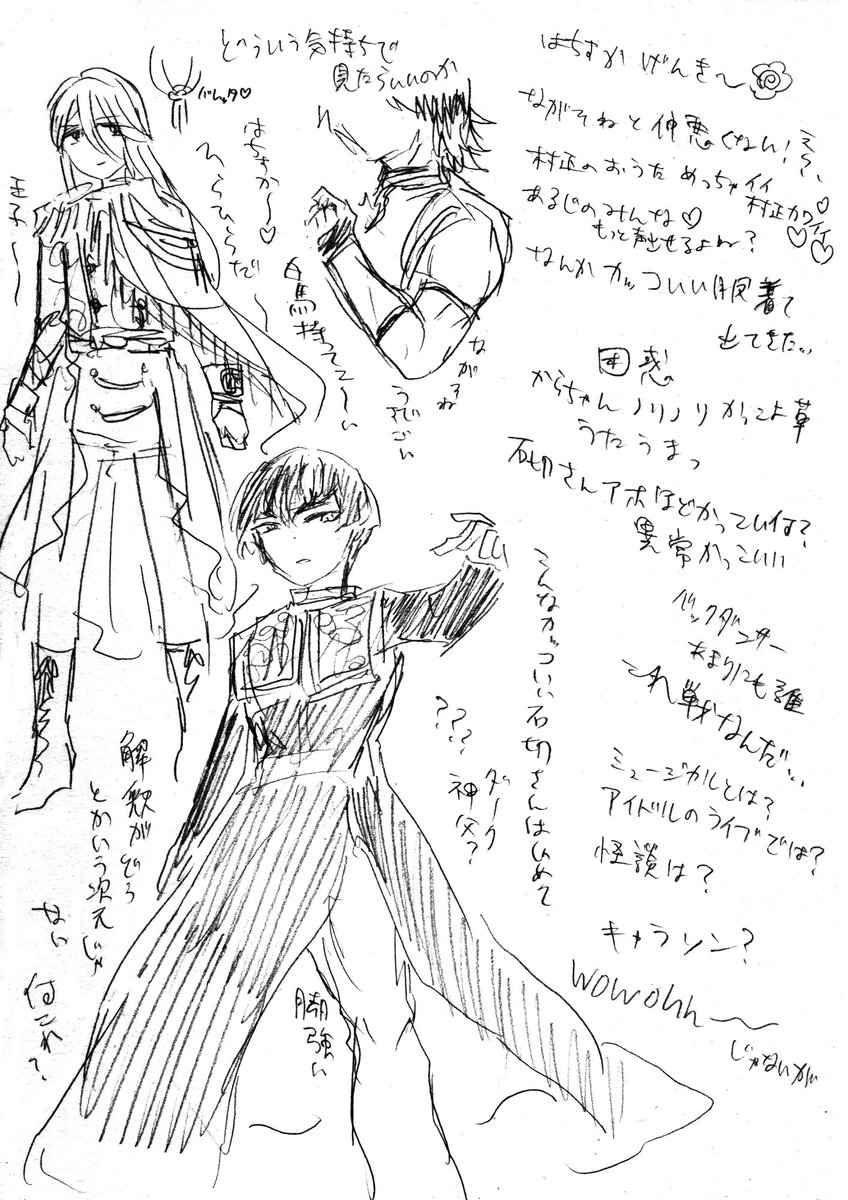 どういう気持ちで
見たらいいのか
バレッタ♡
はちすか〜♡
ひらひらだ〜
王子〜〜
白馬持ってこ〜い
ながそね
うでごつい
はちすか げんき〜
ながそねと仲悪くない!え〜、
村正のおうためっちゃイイ
村正カワイイ♡
あるじのみんな♡
もっと声出せるよね?
なんかカッコいい服着て
出てきた…
困惑
からちゃんノリノリかっこよ草
うたうまっ
石切さんアホほどかっこいいな?
異常かっこいい
バックダンサー
あまりにも誰
これ戦なんだ…
ミュージカルとは?
アイドルのライブでは?
怪談は?
キャラソン?
wowohh〜
じゃないが
こんなカッコいい石切さんはじめて
???
ダーク
神父?
脚強い
解釈がどう
とかいう次元じゃ
ない
何これ?